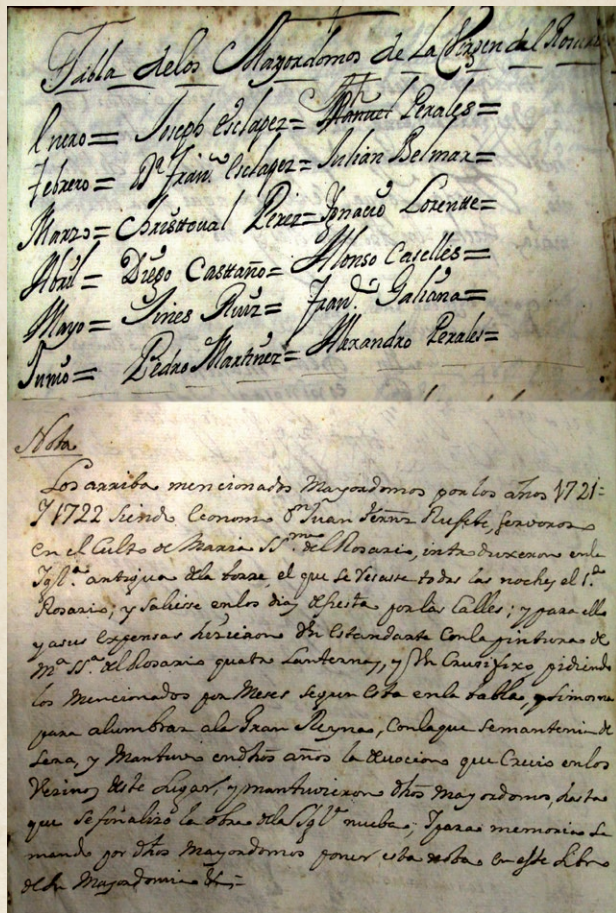 Tabla delos Mayordomos de La Virgen del Rosario
Enero = Joseph Esclapez = Manuel Perales =
Febrero = Dn Fran.co Esclapez = Julian Belmar =
Marzo = Christtoval Perez = Ygnacio Lorentte =
Abril = Diego Casttaño = Alonso Caselles =
Mayo = Jines Ruiz = Fran.co Galiana =
Junio = Pedro Martinez = Alexandro Perales =
Nota
Los arriba mencionados Mayordomos por los años 1721=
Y 1722 siendo Econom Dn Juan Ferñz Rufete, fervoros
en el Culto de Maria SSma del Rosario, introduxeron enla
Yglª antigua dela torre, el que se resase todas las noches el Sto
Rosario; y saliese enlos dias defiesta por las Calles; y para ello
y asus expensas hizieron Un Estandarte Conla pintura de
Mª SSª del Rosario quatro Lanternas, y Un Crusifixo pidiendo
los Mencionados por Meses segun Esta enla tabla, limosna
para alumbrar ala Gran Reyna, Conlaque semantenia de
Sera, y Mantuvo endhos años la devocion que Crecio enlos
Vezinos deste Lugar, y mantuvieron dhos Mayordomos, hasta
que sefinalizó la obra dela Yglª nueba; Ypara memoria se
mando por dhos Mayordomos poner esta nota en este Libro
dela Mayordomia